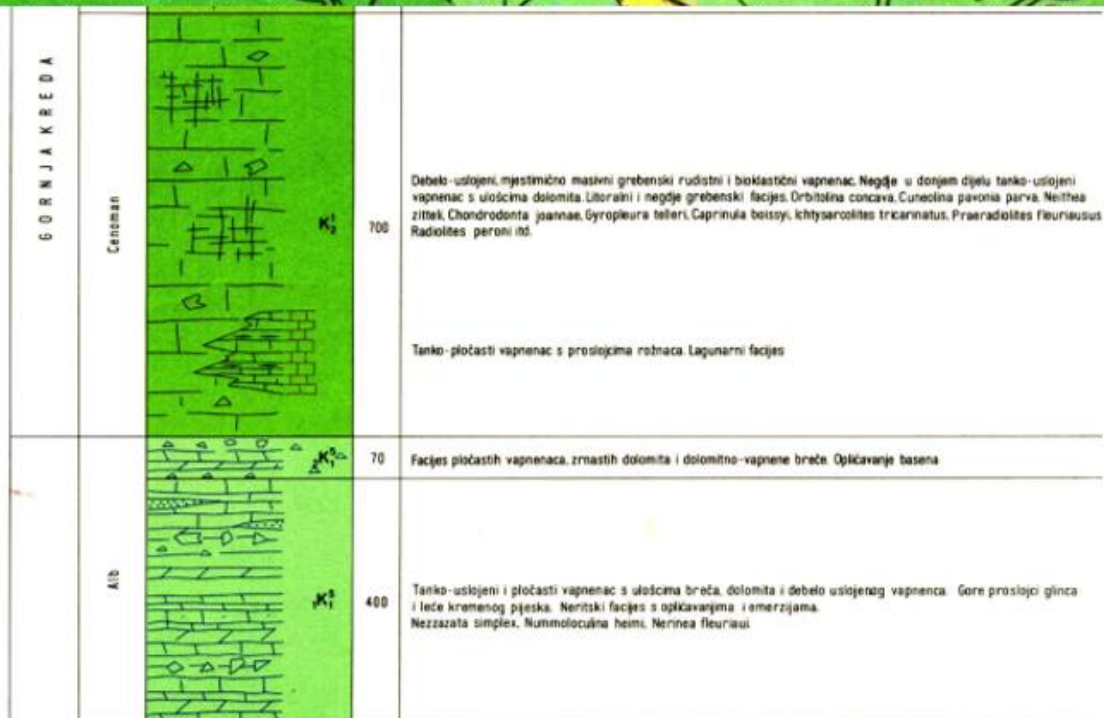 GORNJA KREDA
Cenoman
K₂¹
700
Debelo-uslojeni, mjestimično masivni grebenski rudistni i bioklastični vapnenac. Negdje u donjem dijelu tanko-uslojeni
vapnenac s ulošcima dolomita. Litoralni i negdje grebenski facijes. Orbitolina concava, Cuneolina pavonia parva, Neithea
zitteli, Chondrodonta joannae, Gyropleura telleri, Caprinula boissyi, Ichtysarcolites tricarinatus, Praeradiolites fleuriausus
Radiolites peroni itd.
Tanko-pločasti vapnenac s proslojcima rožnaca. Lagunarni facijes
Alb
70
Facijes pločastih vapnenaca, zrnastih dolomita i dolomitno-vapnene breče. Opličavanje basena
400
Tanko-uslojeni i pločasti vapnenac s ulošcima breča, dolomita i debelo uslojenog vapnenca. Gore proslojci glinca
i leće kremenog pijeska. Neritski facijes s opličavanjima i emerzijama.
Nezzazata simplex, Nummoloculina heimi, Nerinea fleuriaui